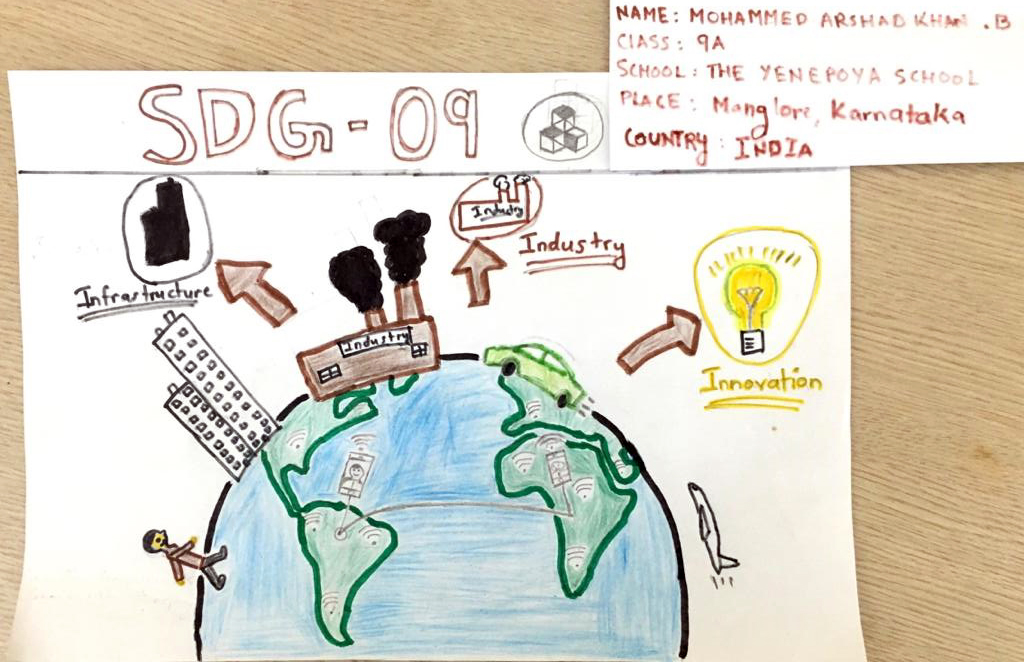 NAME: MOHAMMED ARSHAD KHAN .B
CLASS: 9A
SCHOOL: THE YENEPOYA SCHOOL
PLACE: Manglore, Karnataka
COUNTRY: INDIA
SDG-09
Industry
Industry
Infrastructure
Industry
Innovation